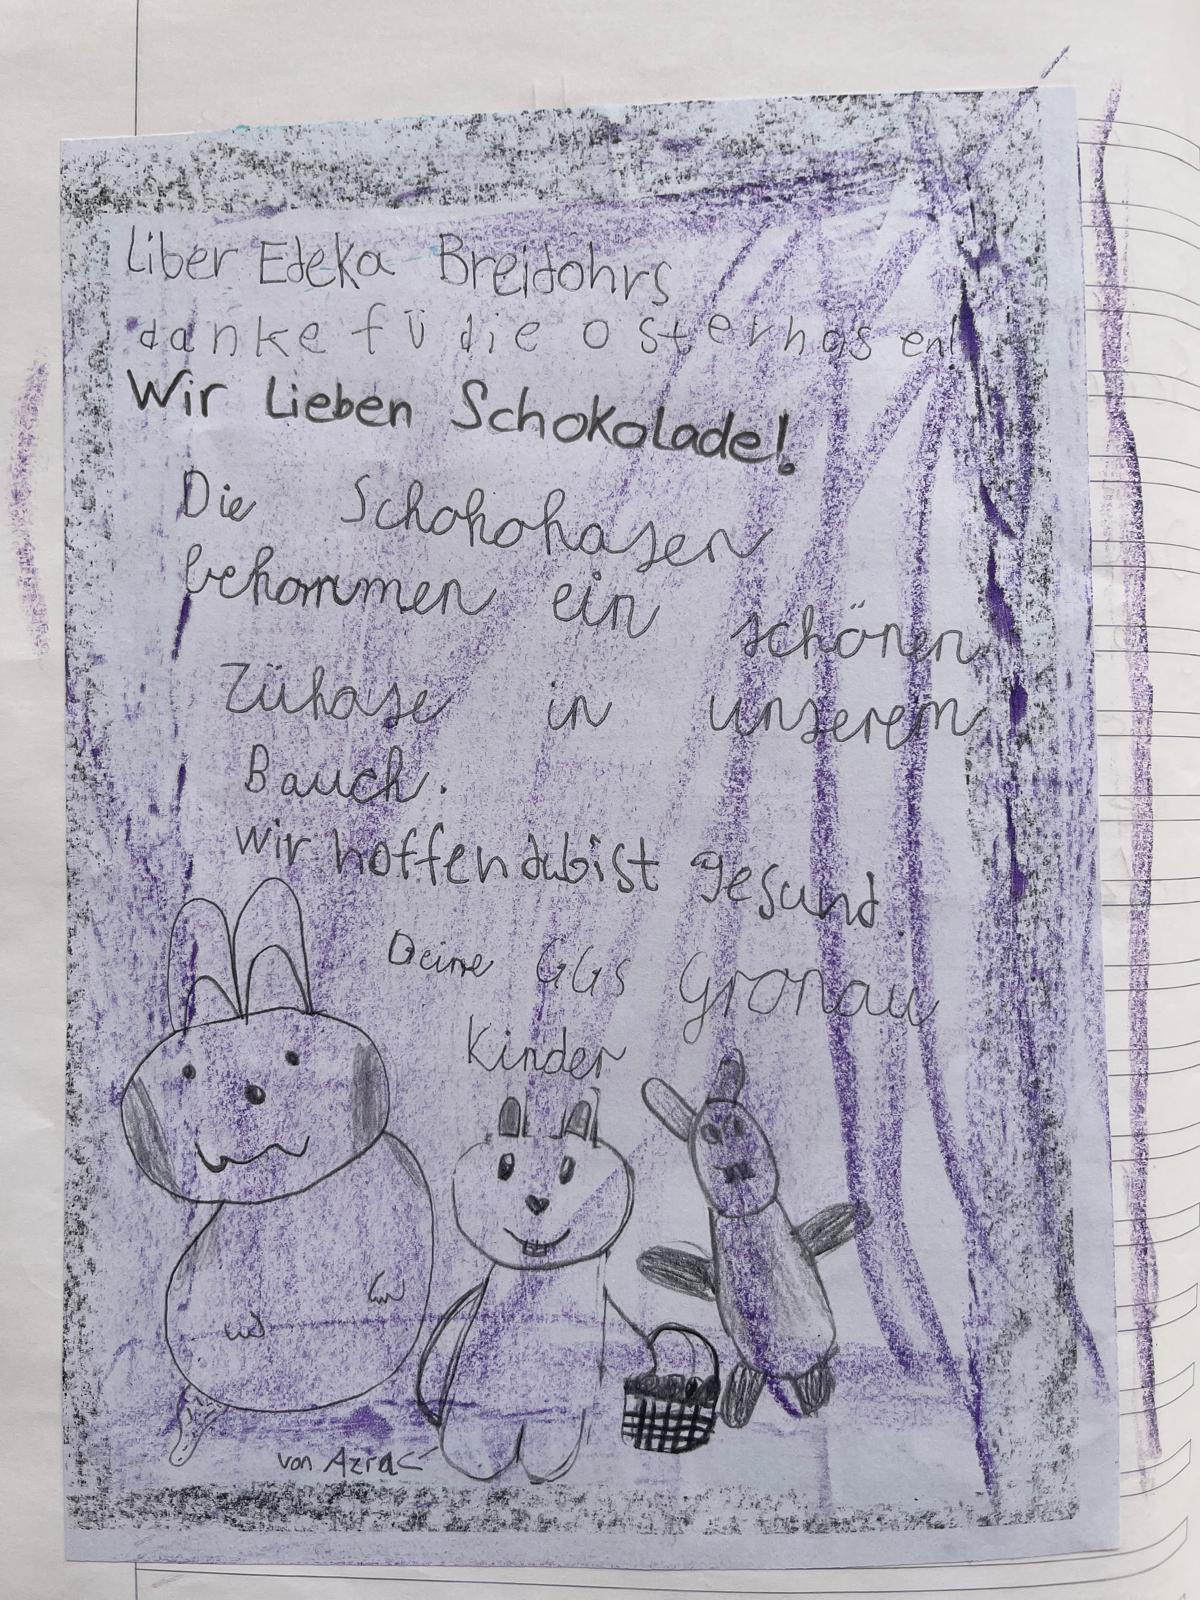 Liber Edeka Breidohrs
danke fü die osterhasen!
Wir Lieben Schokolade!
Die Schokohasen
bekommen ein schönen
Zühase in unserem
Bauch.
wir hoffen du bist gesund.
Deine GGS Gronau
Kinder
von Azra C